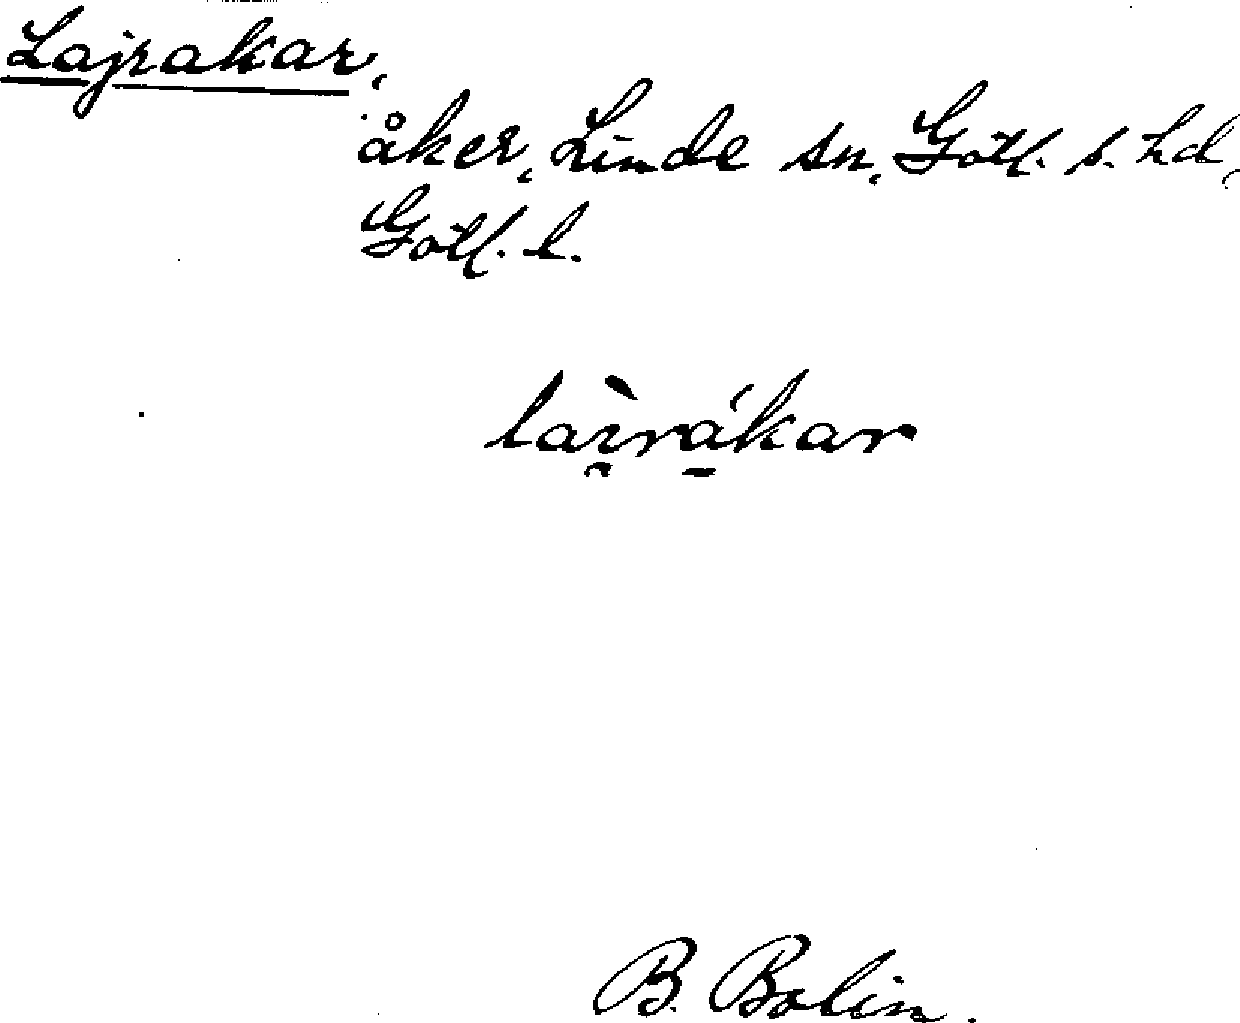 Lajrakar,
åker, Linde sn, Gotl. s. hd,
Gotl. l.
lai̯rákar
B. Bolin.